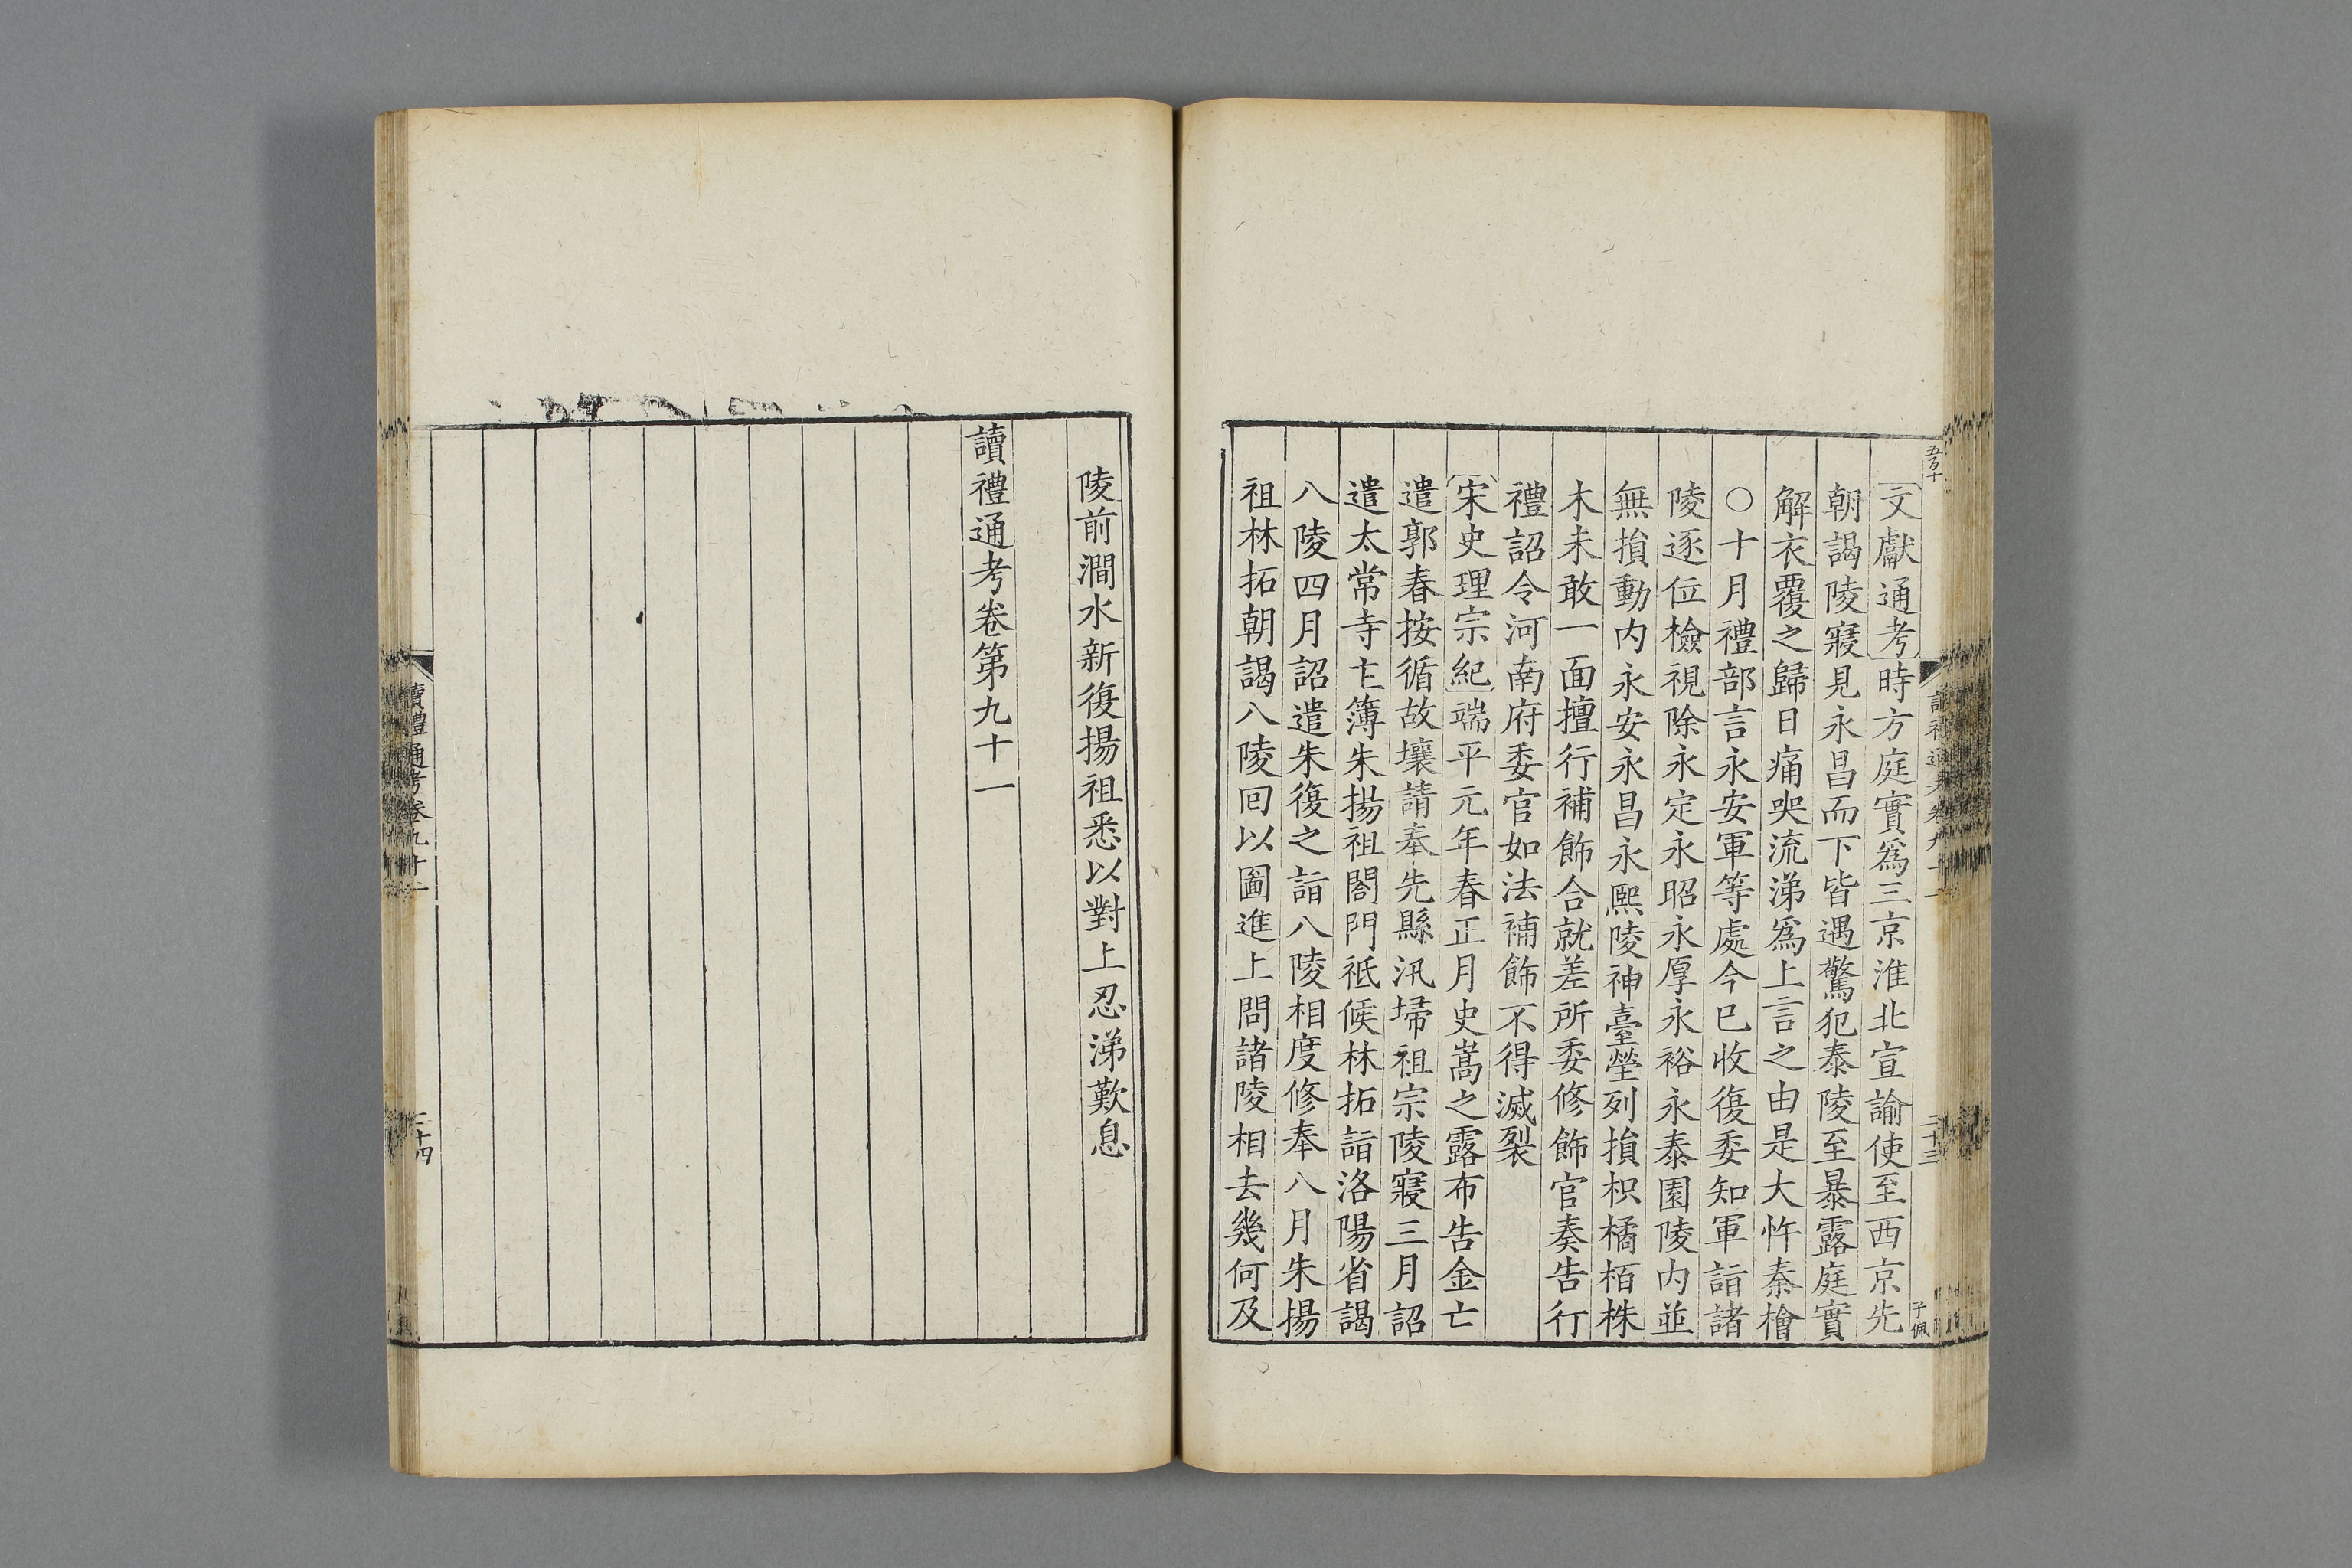 文獻通考時方庭實爲三京淮北宣諭使至西京先
朝謁陵寢見永昌而下皆遇驚犯泰陵至暴露庭實
解衣覆之歸日痛哭流涕爲上言之由是大忤秦檜
○十月禮部言永安軍等處今已收復委知軍詣諸
陵逐位檢視除永定永昭永厚永裕永泰園陵內並
無損動內永安永昌永熙陵神臺塋列損枳橘栢株
木未敢一面擅行補飾合就差所委修飾官奏告行
禮詔令河南府委官如法補飾不得滅裂
宋史理宗紀端平元年春正月史嵩之露布告金亡
遣郭春按循故壤請奉先縣汛埽祖宗陵寢三月詔
遣太常寺主簿朱揚祖閤門祗候林拓詣洛陽省謁
八陵四月詔遣朱復之詣八陵相度修奉八月朱揚
祖林拓朝謁八陵回以圖進上問諸陵相去幾何及
五百十
二十三
子佩
陵前澗水新復揚祖悉以對上忍涕歎息
讀禮通考卷第九十一
讀禮通考卷九十一
二十四